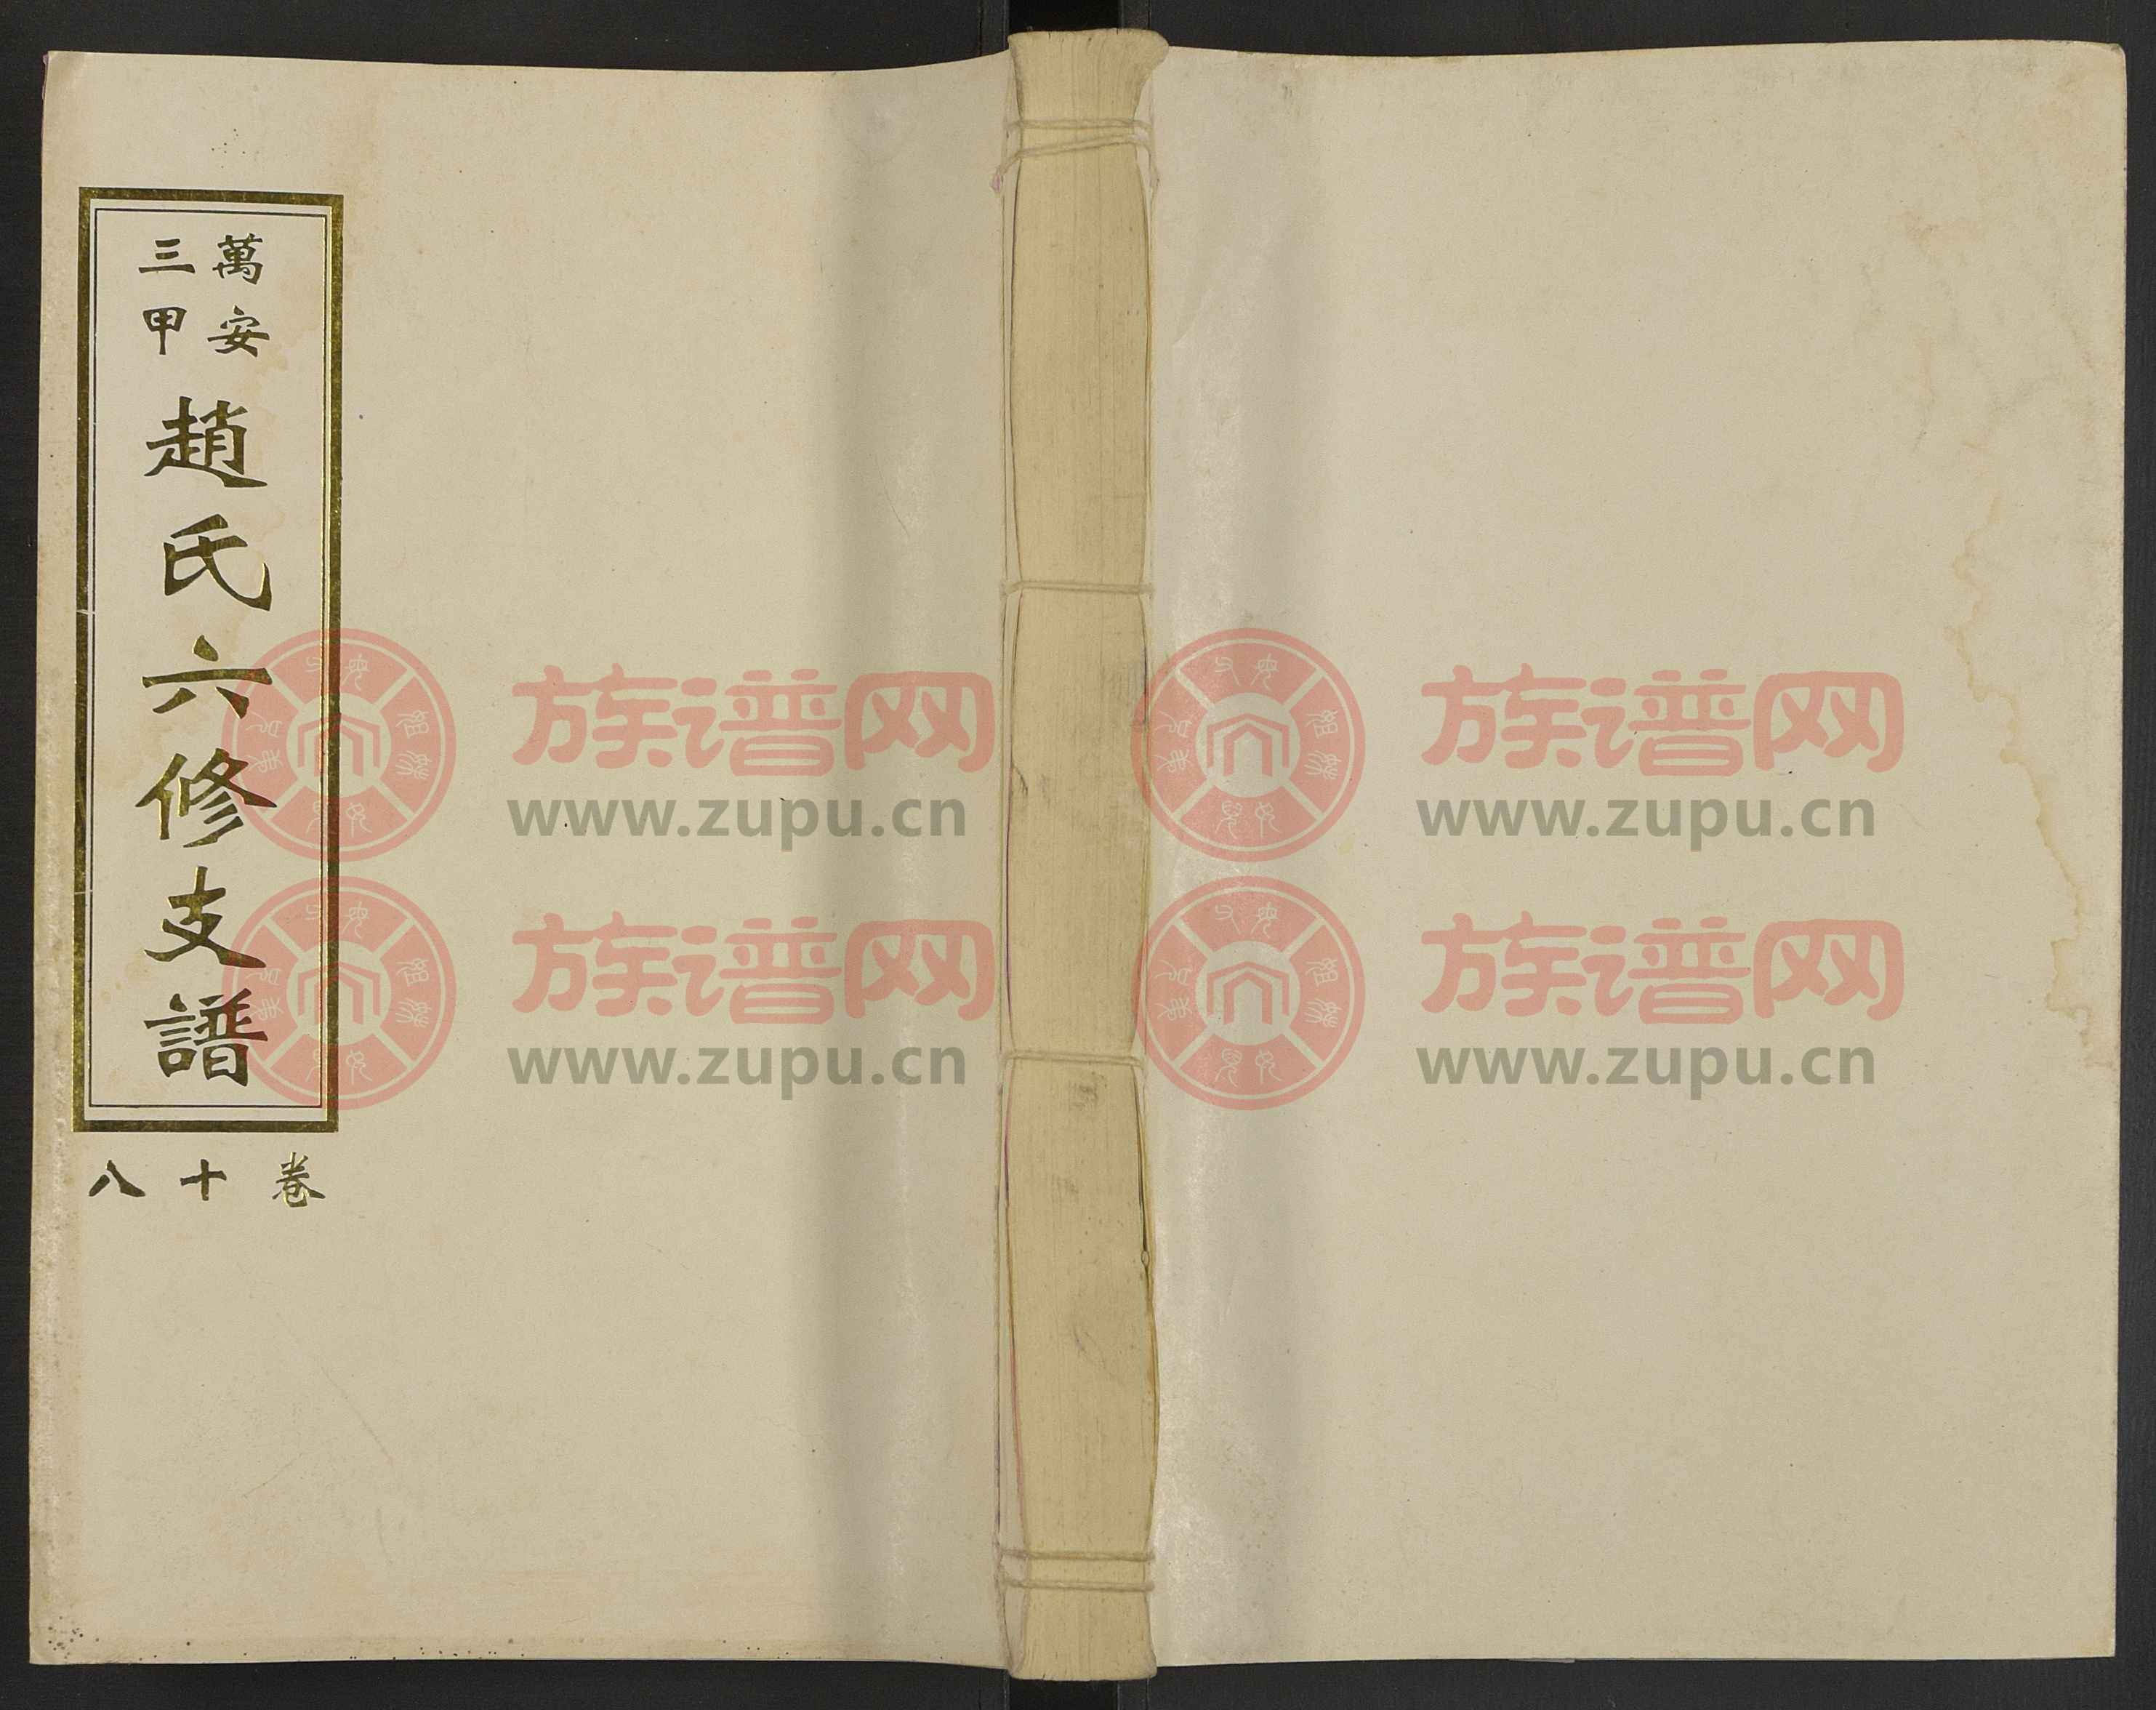 萬安
三甲
趙氏六修支譜
卷十八
族谱网
www.zupu.cn
族谱网
www.zupu.cn
族谱网
www.zupu.cn
族谱网
www.zupu.cn